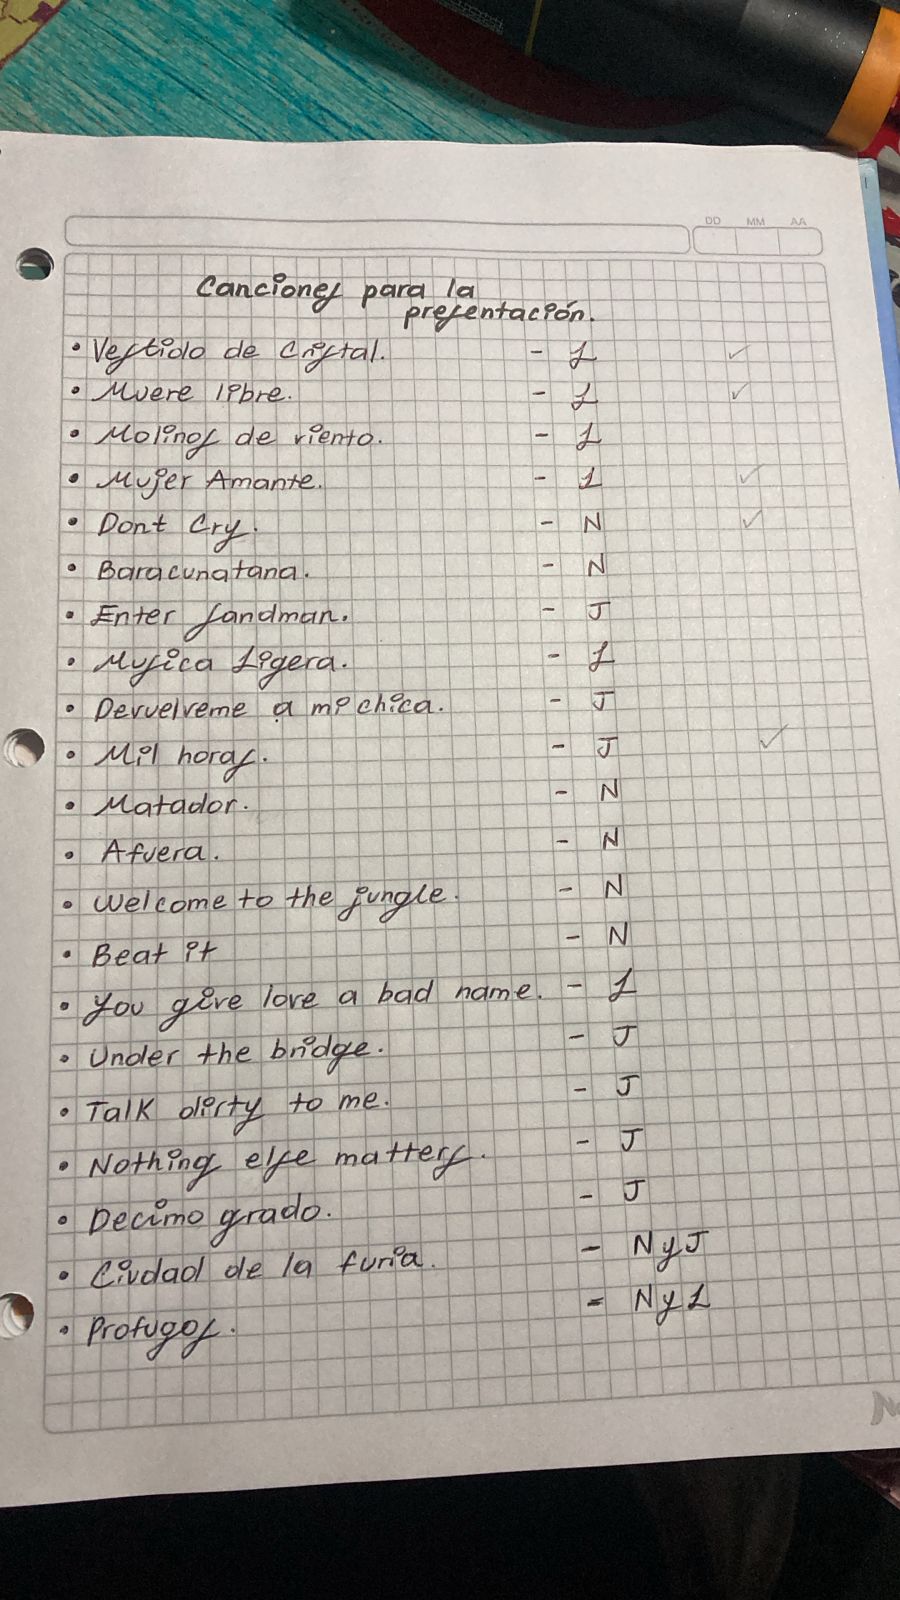 DD MM AA
Canciones para la
presentación.
• Vestido de Cristal. - L ✓
• Muere libre. - L ✓
• Molinos de viento. - L
• Mujer Amante. - L ✓
• Dont Cry. - N ✓
• Baracunatana. - N
• Enter Sandman. - J
• Musica Ligera. - L
• Devuelveme a mi chica. - J
• Mil horas. - J ✓
• Matador. - N
• Afuera. - N
• Welcome to the jungle. - N
• Beat it - N
• You give love a bad name. - L
• Under the bridge. - J
• Talk dirty to me. - J
• Nothing else matters. - J
• Decimo grado. - J
• Ciudad de la furia. - N y J
• Profugos. - N y L